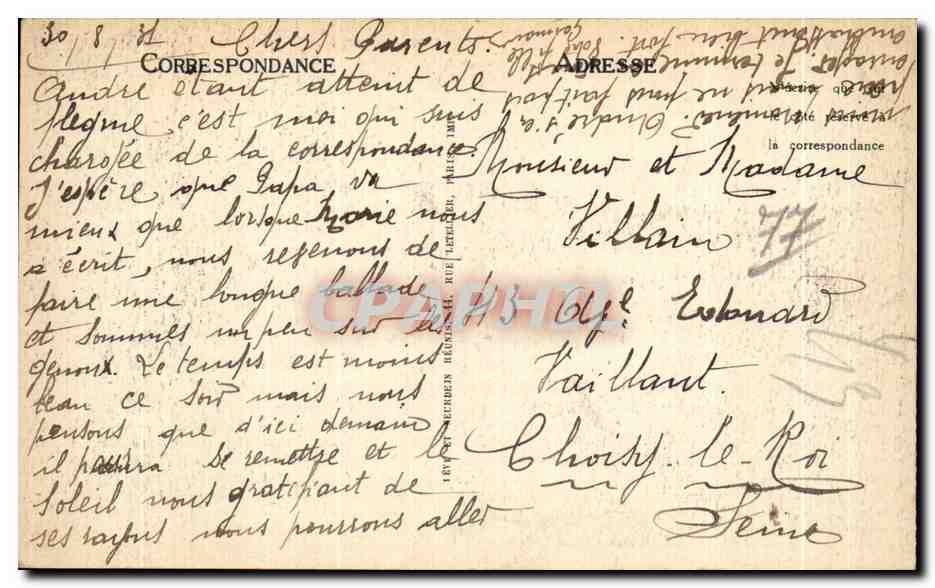 30/8/31 Chers Parents.
CORRESPONDANCE
André étant atteint de
flegme, c'est moi qui suis
chargée de la correspondance.
J'espère que Papa va
mieux que lorsque Marie nous
a écrit, nous revenons de
faire une longue ballade
et sommes un peu sur les
genoux. Le temps est moins
beau ce soir mais nous
pensons que d'ici demain
il pourra se remettre et le
soleil nous gratifiant de
ses rayons nous pourrons aller
nous promener. André s'en
fait pas
Je termine
en embrassant bien fort. Votre fille
ADRESSE
la correspondance
Monsieur et Madame
Villain
43 Av. Edouard
Vaillant.
Choisy-le-Roi
Seine
77
LÉVY ET NEURDEIN RÉUNIS, 44, RUE LETELLIER, PARIS IMP.
CPAPHIL